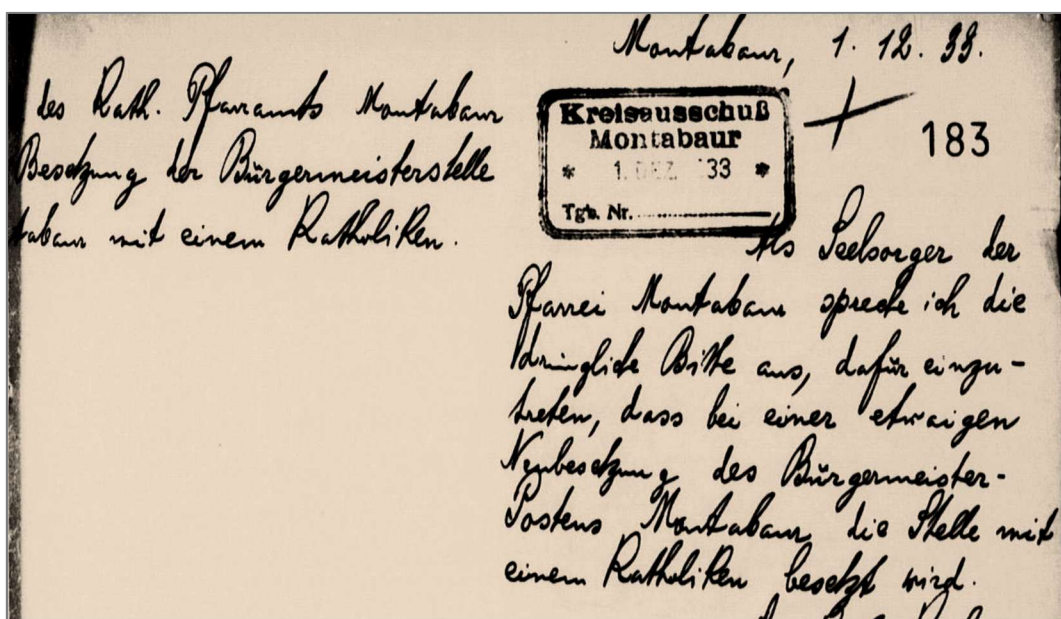 Montabaur, 1. 12. 33.
des Kath. Pfarramts Montabaur
Besetzung der Bürgermeisterstelle
tabaur mit einem Katholiken.
Kreisausschuß
Montabaur
* 1. DEZ. 33 *
Tgb. Nr.
183
Als Seelsorger der
Pfarrei Montabaur spreche ich die
dringliche Bitte aus, dafür einzu-
treten, dass bei einer etwaigen
Neubesetzung des Bürgermeister-
Postens Montabaur die Stelle mit
einem Katholiken besetzt wird.